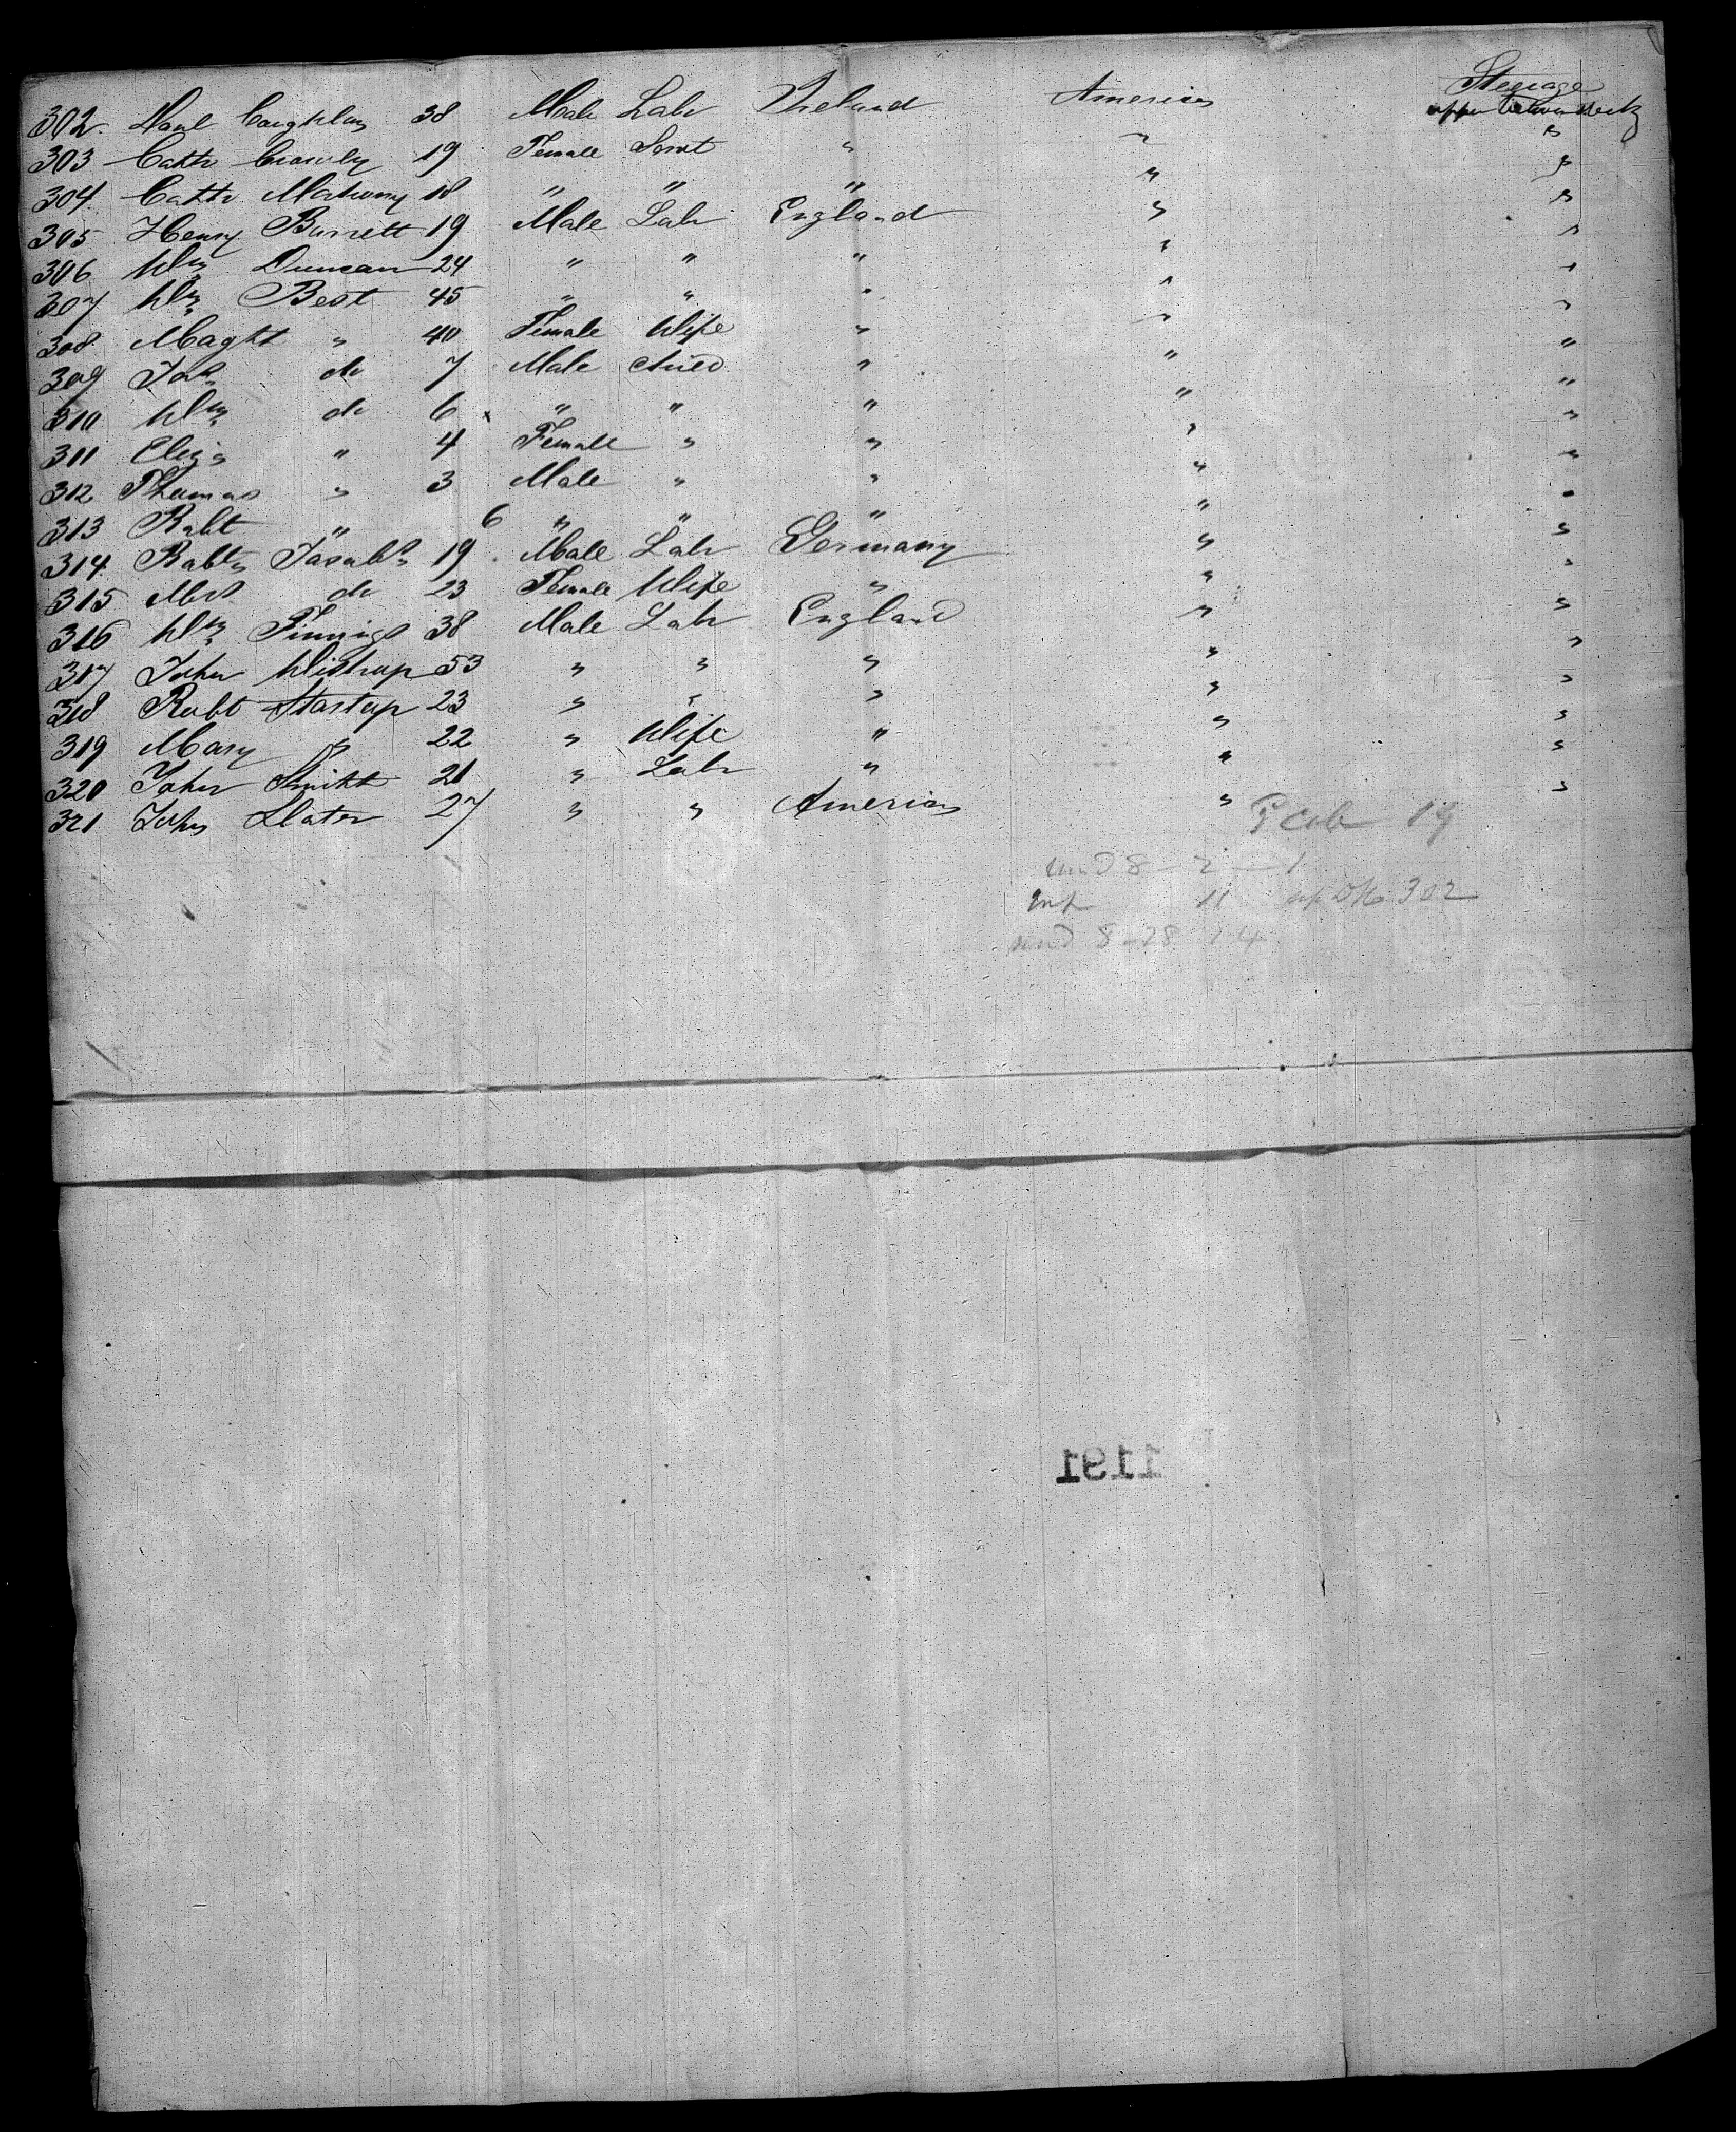 Steerage
302. Danl Coughlan 38 Male Labr Ireland America upper between decks
303 Cathe Crowly 19 Female Servt " " "
304. Cathe Mahony 18 " " " " "
305 Henry Barrett 19 Male Labr England " "
306 Wm Duncan 24 " " " " "
307 Wm Best 45 " " " " "
308 Maggt " 40 Female Wife " " "
309 Jas do 7 Male Child " " "
310 Wm do 6 " " " " "
311 Eliza " 4 Female " " " "
312 Thomas " 3 Male " " " "
313 Robt " 6 " " " " "
314. Robt 19 Male Labr Germany " "
315 Mrs do 23 Female Wife " " "
316 Wm 38 Male Labr England " "
317 John 53 " " " " "
318 Robt Startup 23 " " " " "
319 Mary " 22 " Wife " " "
320 John Smith 21 " Labr " " "
321 John Slater 27 " " America " "
19
8 - 2 - 1
Inf 11 302
8 - 28 14
1191